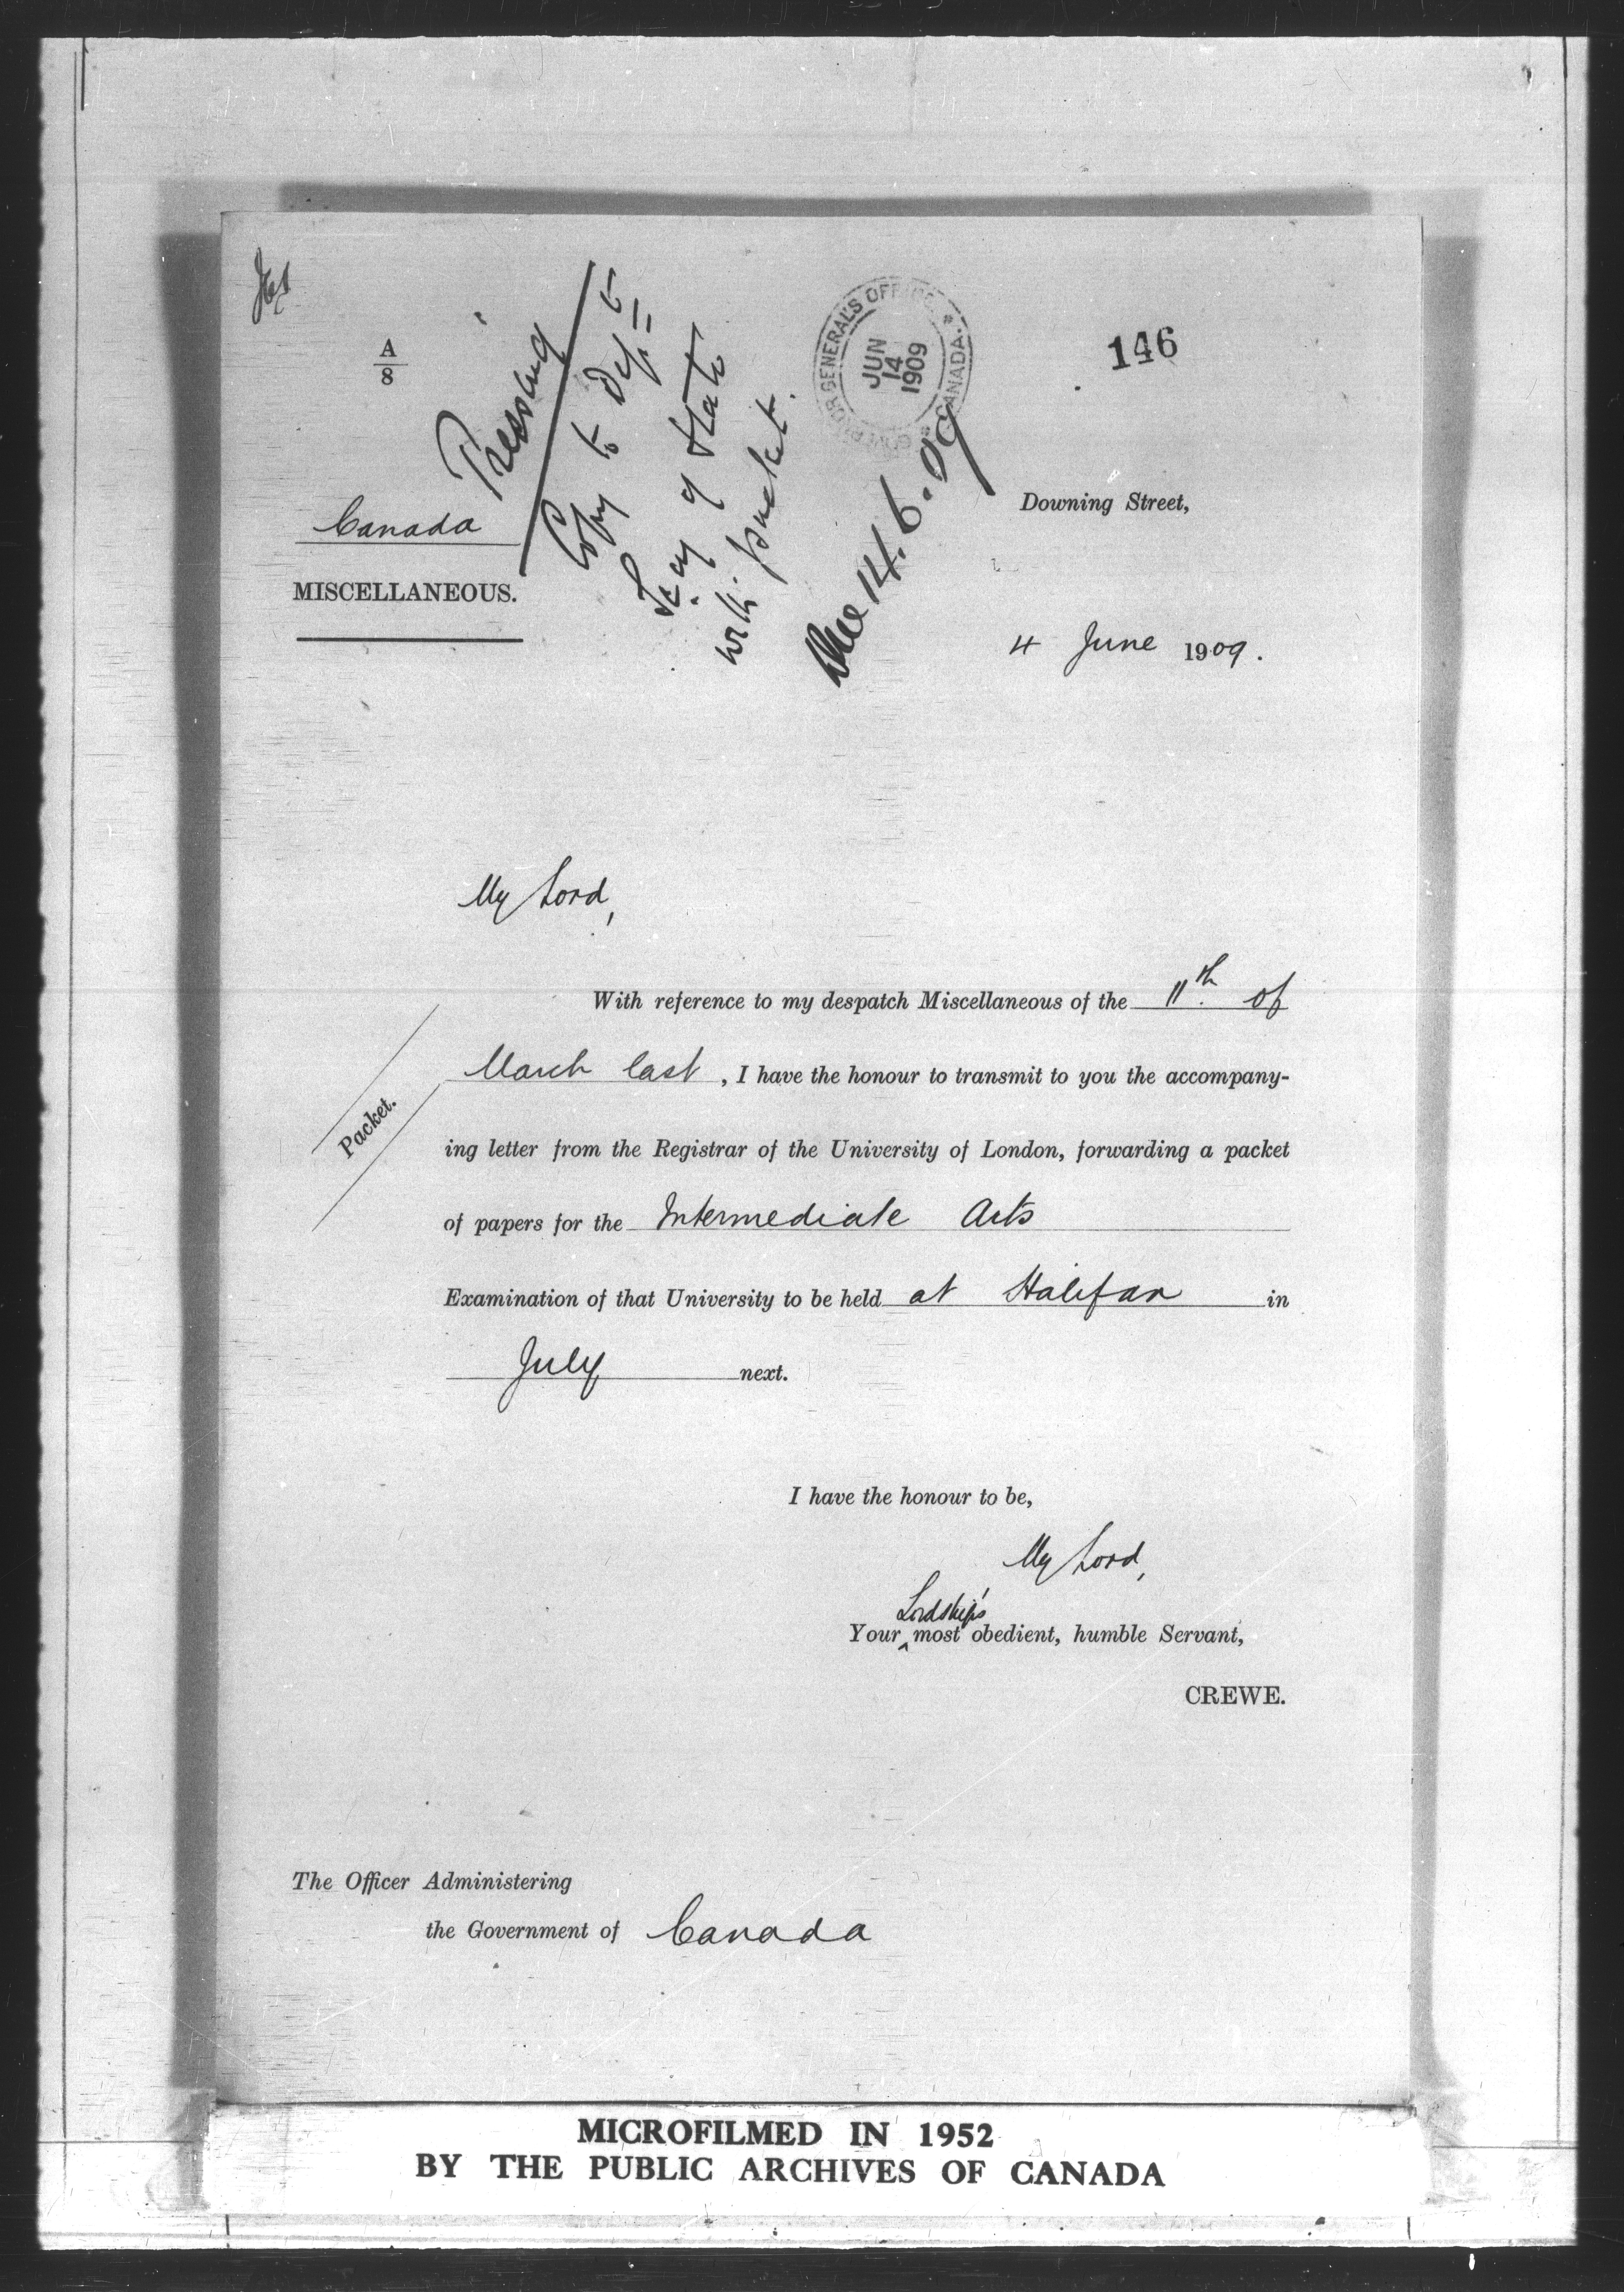 A
8
Pressing
Canada
MISCELLANEOUS.
Copy to
of State
with packet.
GOVERNOR GENERAL'S OFFICE
* CANADA. *
JUN
14
1909
14.6.09
146
Downing Street,
4 June 1909.
My Lord,
With reference to my despatch Miscellaneous of the 11th. of
March last, I have the honour to transmit to you the accompany-
Packet.
ing letter from the Registrar of the University of London, forwarding a packet
of papers for the Intermediate Arts
Examination of that University to be held at Halifax in
July next.
I have the honour to be,
My Lord,
Lordship's
Your ^ most obedient, humble Servant,
CREWE.
The Officer Administering
the Government of Canada
MICROFILMED IN 1952
BY THE PUBLIC ARCHIVES OF CANADA